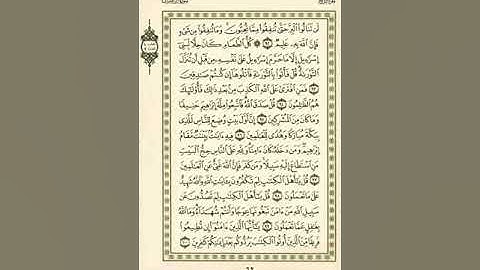 لَن تَنَالُوا۟ ٱلْبِرَّ حَتَّىٰ تُنفِقُوا۟ مِمَّا تُحِبُّونَ ۚ وَمَا تُنفِقُوا۟ مِن شَىْءٍ
فَإِنَّ ٱللَّهَ بِهِۦ عَلِيمٌ ٩٢ ۞ كُلُّ ٱلطَّعَامِ كَانَ حِلًّا لِّبَنِىٓ
إِسْرَٰٓءِيلَ إِلَّا مَا حَرَّمَ إِسْرَٰٓءِيلُ عَلَىٰ نَفْسِهِۦ مِن قَبْلِ أَن تُنَزَّلَ
ٱلتَّوْرَىٰةُ ۗ قُلْ فَأْتُوا۟ بِٱلتَّوْرَىٰةِ فَٱتْلُوهَآ إِن كُنتُمْ صَٰدِقِينَ
٩٣ فَمَنِ ٱفْتَرَىٰ عَلَى ٱللَّهِ ٱلْكَذِبَ مِنۢ بَعْدِ ذَٰلِكَ فَأُو۟لَٰٓئِكَ
هُمُ ٱلظَّٰلِمُونَ ٩٤ قُلْ صَدَقَ ٱللَّهُ ۗ فَٱتَّبِعُوا۟ مِلَّةَ إِبْرَٰهِيمَ حَنِيفًا
وَمَا كَانَ مِنَ ٱلْمُشْرِكِينَ ٩٥ إِنَّ أَوَّلَ بَيْتٍ وُضِعَ لِلنَّاسِ لَلَّذِى
بِبَكَّةَ مُبَارَكًا وَهُدًى لِّلْعَٰلَمِينَ ٩٦ فِيهِ ءَايَٰتٌۢ بَيِّنَٰتٌ مَّقَامُ
إِبْرَٰهِيمَ ۖ وَمَن دَخَلَهُۥ كَانَ ءَامِنًا ۗ وَلِلَّهِ عَلَى ٱلنَّاسِ حِجُّ ٱلْبَيْتِ
مَنِ ٱسْتَطَاعَ إِلَيْهِ سَبِيلًا ۚ وَمَن كَفَرَ فَإِنَّ ٱللَّهَ غَنِىٌّ عَنِ ٱلْعَٰلَمِينَ
٩٧ قُلْ يَٰٓأَهْلَ ٱلْكِتَٰبِ لِمَ تَكْفُرُونَ بِـَٔايَٰتِ ٱللَّهِ وَٱللَّهُ شَهِيدٌ
عَلَىٰ مَا تَعْمَلُونَ ٩٨ قُلْ يَٰٓأَهْلَ ٱلْكِتَٰبِ لِمَ تَصُدُّونَ عَن
سَبِيلِ ٱللَّهِ مَنْ ءَامَنَ تَبْغُونَهَا عِوَجًا وَأَنتُمْ شُهَدَآءُ ۗ وَمَا ٱللَّهُ
بِغَٰفِلٍ عَمَّا تَعْمَلُونَ ٩٩ يَٰٓأَيُّهَا ٱلَّذِينَ ءَامَنُوٓا۟ إِن تُطِيعُوا۟
فَرِيقًا مِّنَ ٱلَّذِينَ أُوتُوا۟ ٱلْكِتَٰبَ يَرُدُّوكُم بَعْدَ إِيمَٰنِكُمْ كَٰفِرِينَ ١٠٠
٦٢